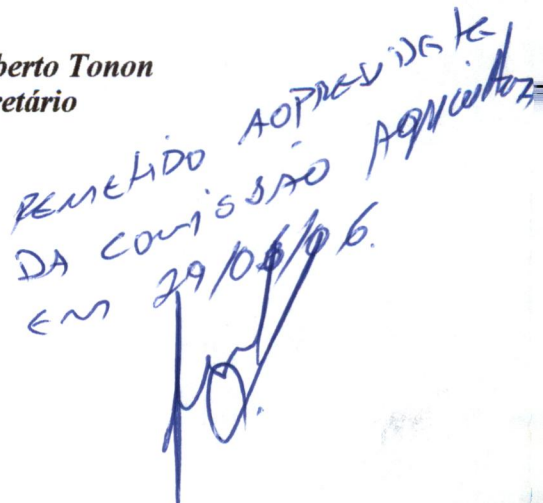 berto Tonon
retário
REMETIDO AO PRESIDENTE
DA COMISSÃO AGRICULTURA
EM 29/06/06.